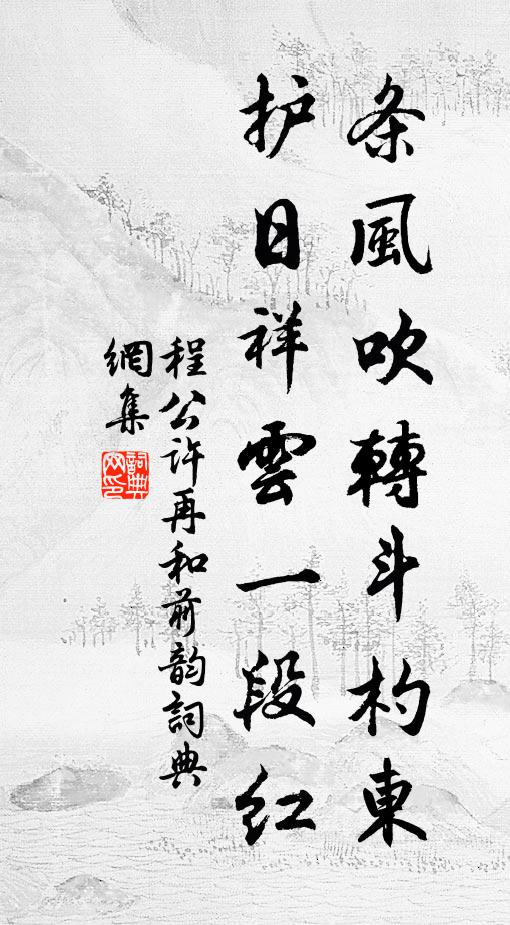 条風吹轉斗杓東
护日祥雲一段红
程公许再和前韵詞典
網集
詞典網印